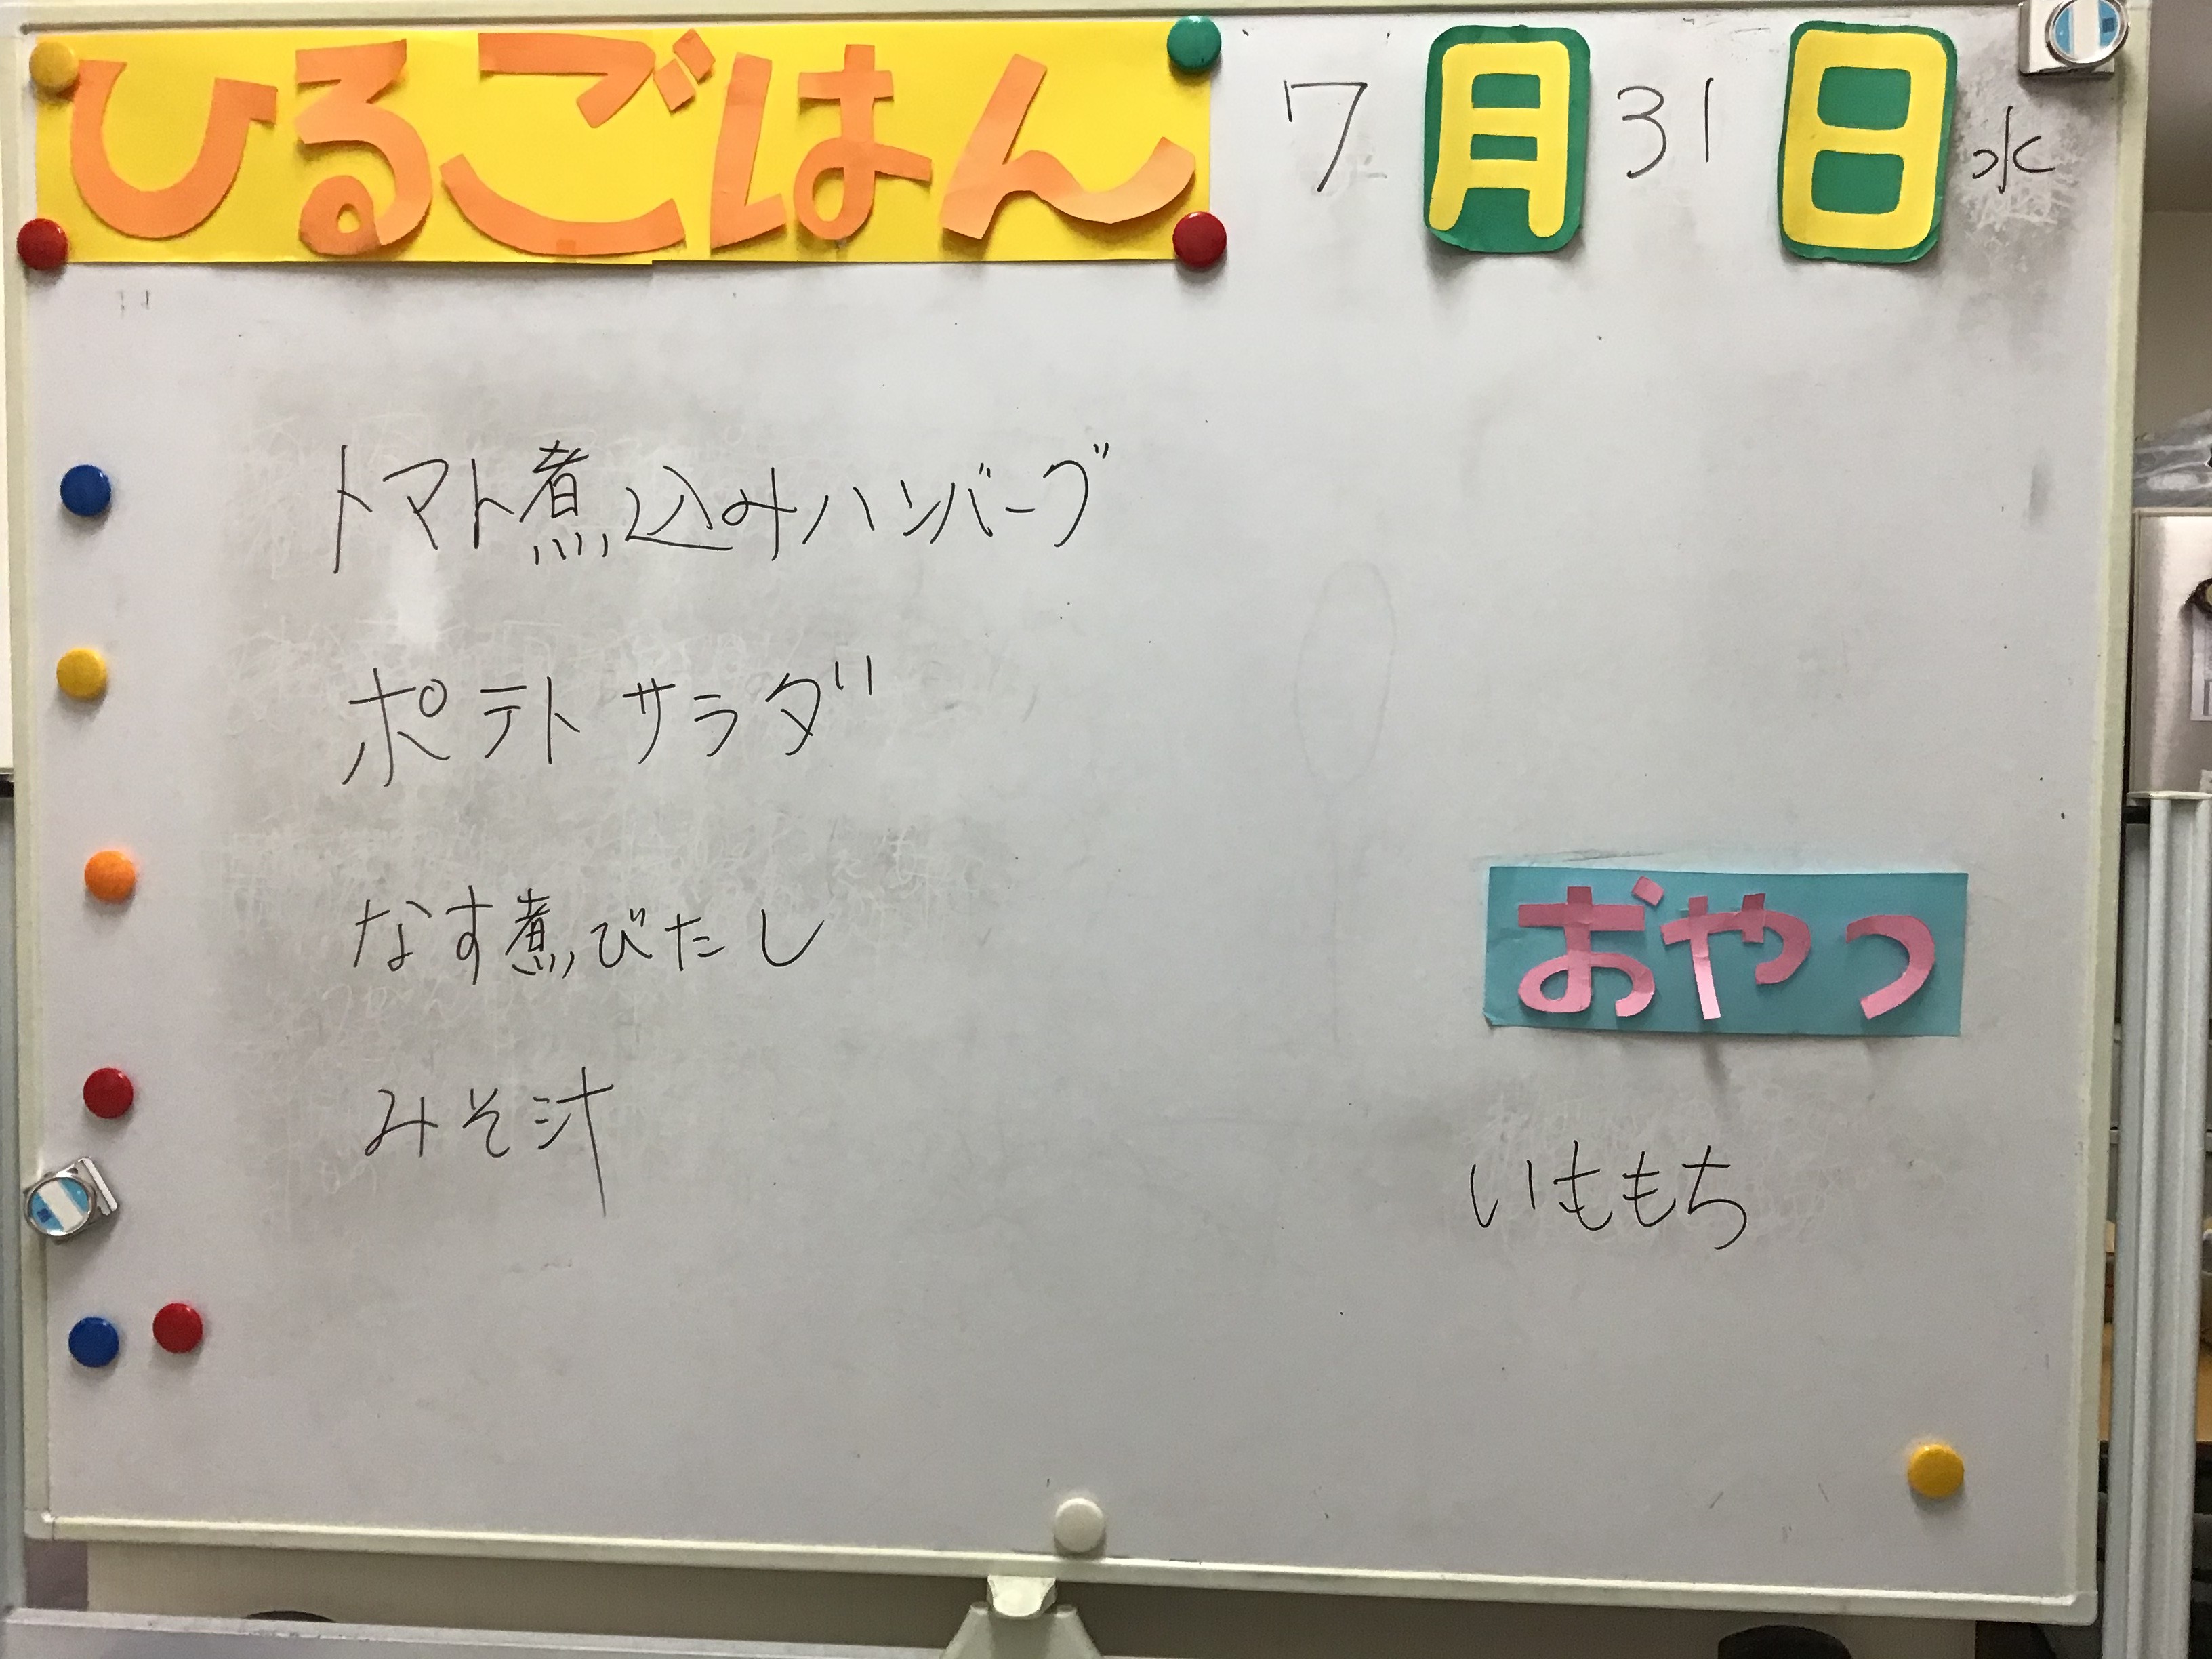 ひるごはん 7月31日 水
トマト煮込みハンバーグ
ポテトサラダ
なす煮びたし
みそ汁
おやつ
いももち